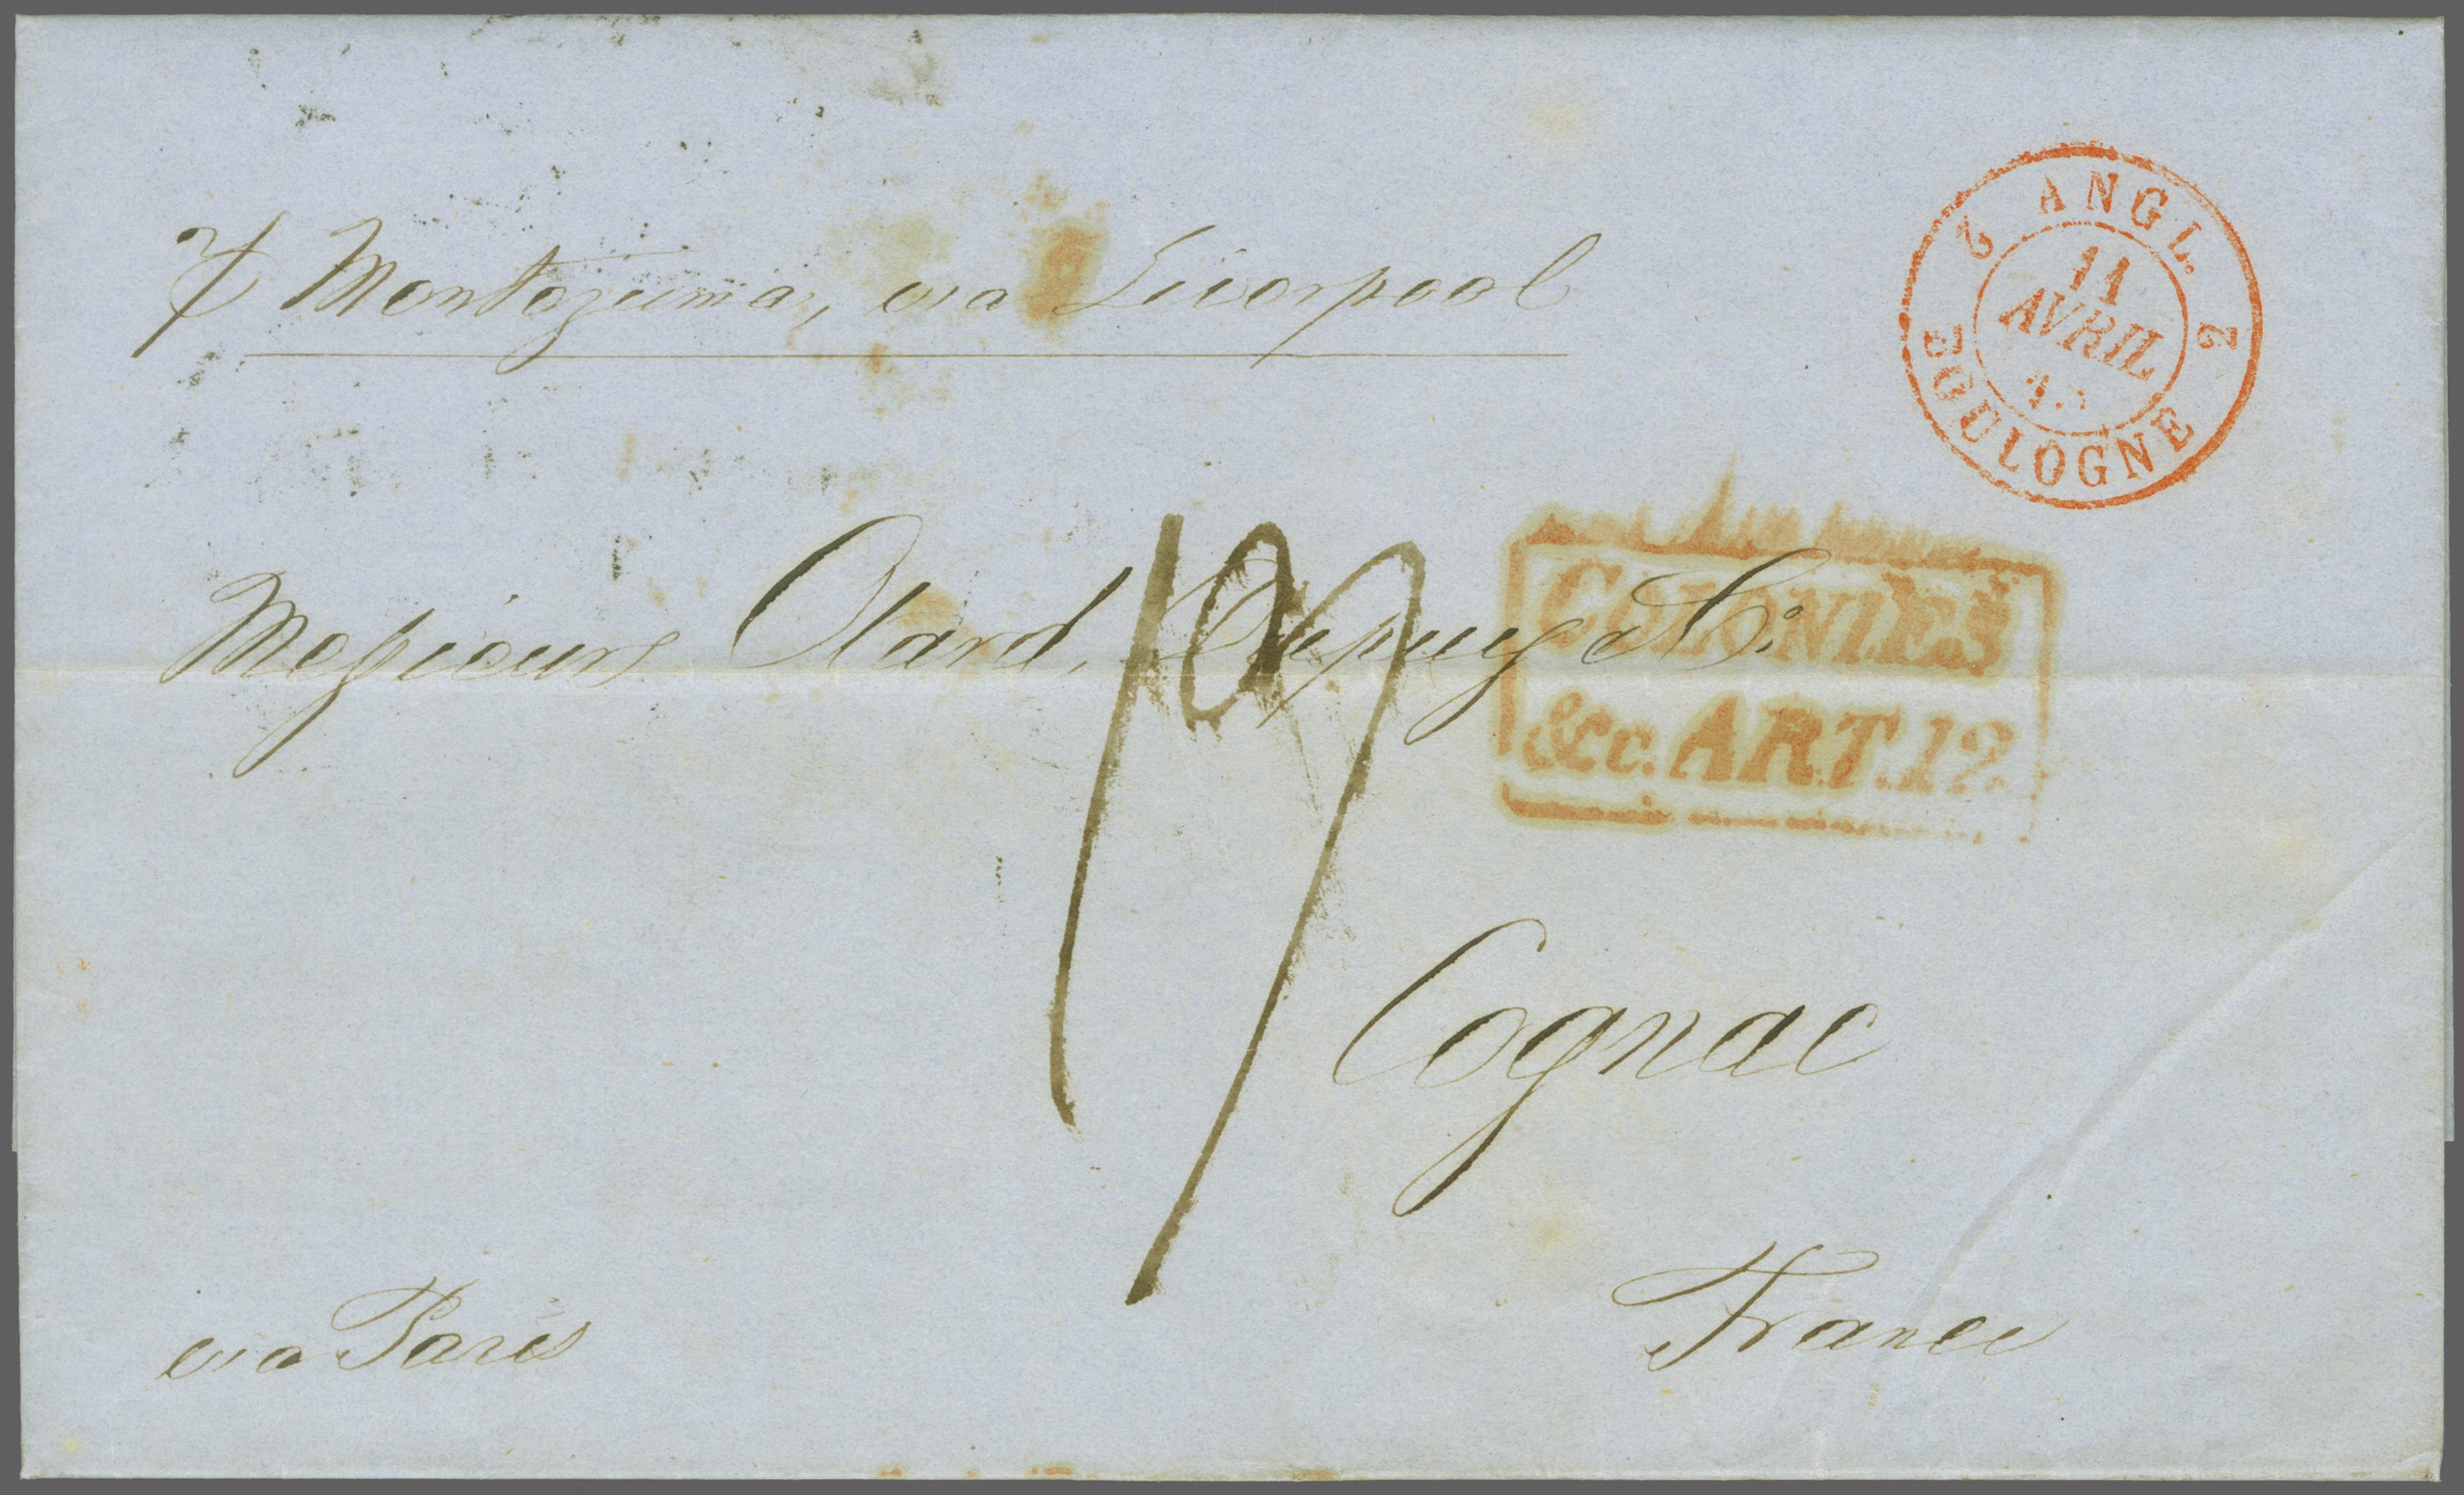 ⅌ Montezuma, via Liverpool
2 ANGL. 2
11
AVRIL
BOULOGNE
Messieurs Otard, Dupuy & Co.
COLONIES
&c. ART. 12
19
Cognac
France
via Paris